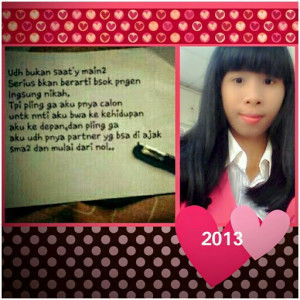 Udh bukan saat'y main2
Serius bkan berarti bsok pngen
lngsung nikah,
Tpi pling ga aku pnya calon
untk nnti aku bwa ke kehidupan
aku ke depan,dan pling ga
aku udh pnya partner yg bsa di ajak
sma2 dan mulai dari nol..
2013